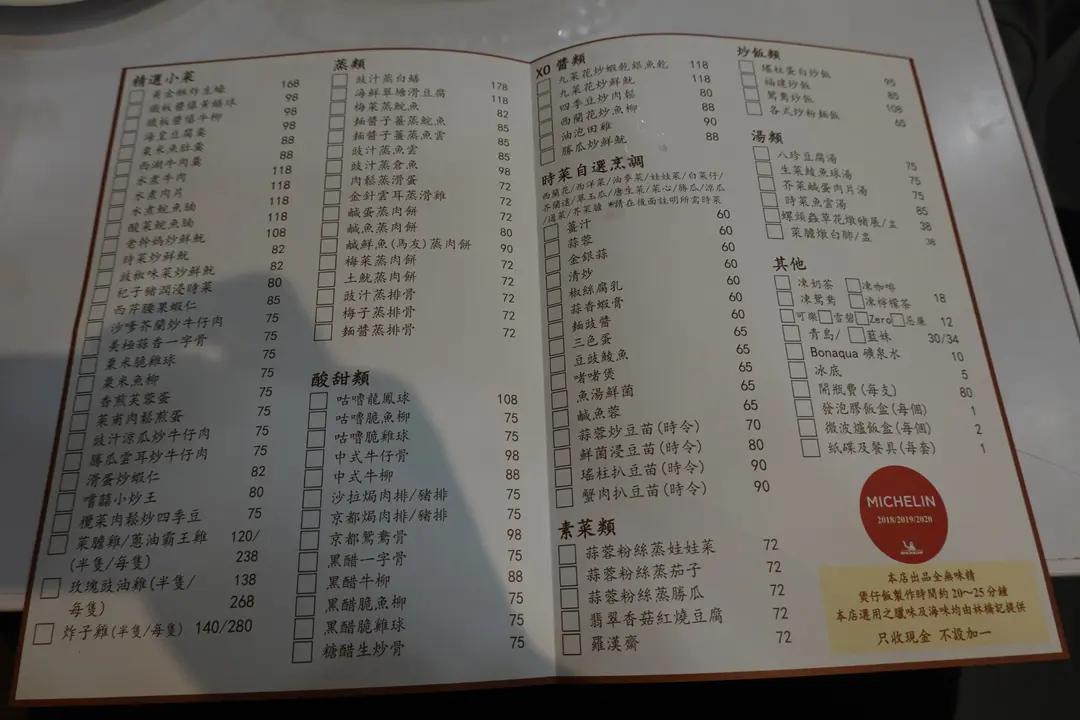 精選小菜
黃金椒炸生蠔 168
鐵板醬爆黃鱔球 98
鐵板醬爆牛柳 98
海皇豆腐羹 98
粟米魚肚羹 88
西湖牛肉羹 88
水煮牛肉 118
水煮肉片 118
水煮鯇魚腩 118
酸菜鯇魚腩 118
老幹媽炒鮮魷 108
時菜炒鮮魷 82
豉椒味菜炒鮮魷 82
杞子豬潤浸時菜 80
西芹腰果蝦仁 85
沙爹芥蘭炒牛仔肉 75
美極蒜香一字骨 75
粟米脆雞球 75
粟米魚柳 75
香煎芙蓉蛋 75
菜甫肉鬆煎蛋 75
豉汁涼瓜炒牛仔肉 75
勝瓜雲耳炒牛仔肉 75
滑蛋炒蝦仁 82
嚐囍小炒王 80
欖菜肉鬆炒四季豆 75
菜膽雞/蔥油霸王雞 120/
(半隻/每隻) 238
玫瑰豉油雞(半隻/ 138
每隻) 268
炸子雞(半隻/每隻) 140/280
蒸類
豉汁蒸白鱔 178
海鮮翠塘滑豆腐 118
梅菜蒸鯇魚 82
麵醬子薑蒸鯇魚 85
麵醬子薑蒸魚雲 85
豉汁蒸魚雲 85
豉汁蒸倉魚 98
肉鬆蒸滑蛋 72
金針雲耳蒸滑雞 72
鹹蛋蒸肉餅 72
鹹魚蒸肉餅 80
鹹鮮魚(馬友)蒸肉餅 90
梅菜蒸肉餅 72
土魷蒸肉餅 72
豉汁蒸排骨 72
梅子蒸排骨 72
麵醬蒸排骨 72
酸甜類
咕嚕龍鳳球 108
咕嚕脆魚柳 75
咕嚕脆雞球 75
中式牛仔骨 98
中式牛柳 88
沙拉焗肉排/豬排 75
京都焗肉排/豬排 75
京都鴛鴦骨 98
黑醋一字骨 75
黑醋牛柳 88
黑醋脆魚柳 75
黑醋脆雞球 75
糖醋生炒骨 75
XO 醬類
九菜花炒蝦乾銀魚乾 118
九菜花炒鮮魷 118
四季豆炒肉鬆 80
西蘭花炒魚柳 88
油泡田雞 90
勝瓜炒鮮魷 88
時菜自選烹調
西蘭花/西洋菜/油麥菜/娃娃菜/白菜仔/
芥蘭遠/翠玉瓜/唐生菜/菜心/勝瓜/涼瓜
/通菜/芥菜膽 *請在後面註明所需時菜
薑汁 60
蒜蓉 60
金銀蒜 60
清炒 60
椒絲腐乳 60
蒜香蝦膏 60
麵豉醬 60
三色蛋 65
豆豉鯪魚 65
啫啫煲 65
魚湯鮮菌 65
鹹魚蓉 65
蒜蓉炒豆苗(時令) 70
鮮菌浸豆苗(時令) 80
瑤柱扒豆苗(時令) 90
蟹肉扒豆苗(時令) 90
素菜類
蒜蓉粉絲蒸娃娃菜 72
蒜蓉粉絲蒸茄子 72
蒜蓉粉絲蒸勝瓜 72
翡翠香菇紅燒豆腐 72
羅漢齋 72
炒飯類
瑤柱蛋白炒飯 95
福建炒飯 85
鴛鴦炒飯 108
各式炒粉麵飯 65
湯類
八珍豆腐湯 75
生菜鯪魚球湯 75
芥菜鹹蛋肉片湯 75
時菜魚雲湯 85
螺頭蟲草花燉豬展/盅 38
菜膽燉白肺/盅 38
其他
凍奶茶 凍咖啡
凍鴛鴦 凍檸檬茶 18
可樂 雪碧 Zero 忌廉 12
青島/ 藍妹 30/34
Bonaqua 礦泉水 10
冰底 5
開瓶費(每支) 80
發泡膠飯盒(每個) 1
微波爐飯盒(每個) 2
紙碟及餐具(每套) 1
MICHELIN
2018/2019/2020
MICHELIN
本店出品全無味精
煲仔飯製作時間約 20～25 分鐘
本店選用之臘味及海味均由林橋記提供
只收現金 不設加一